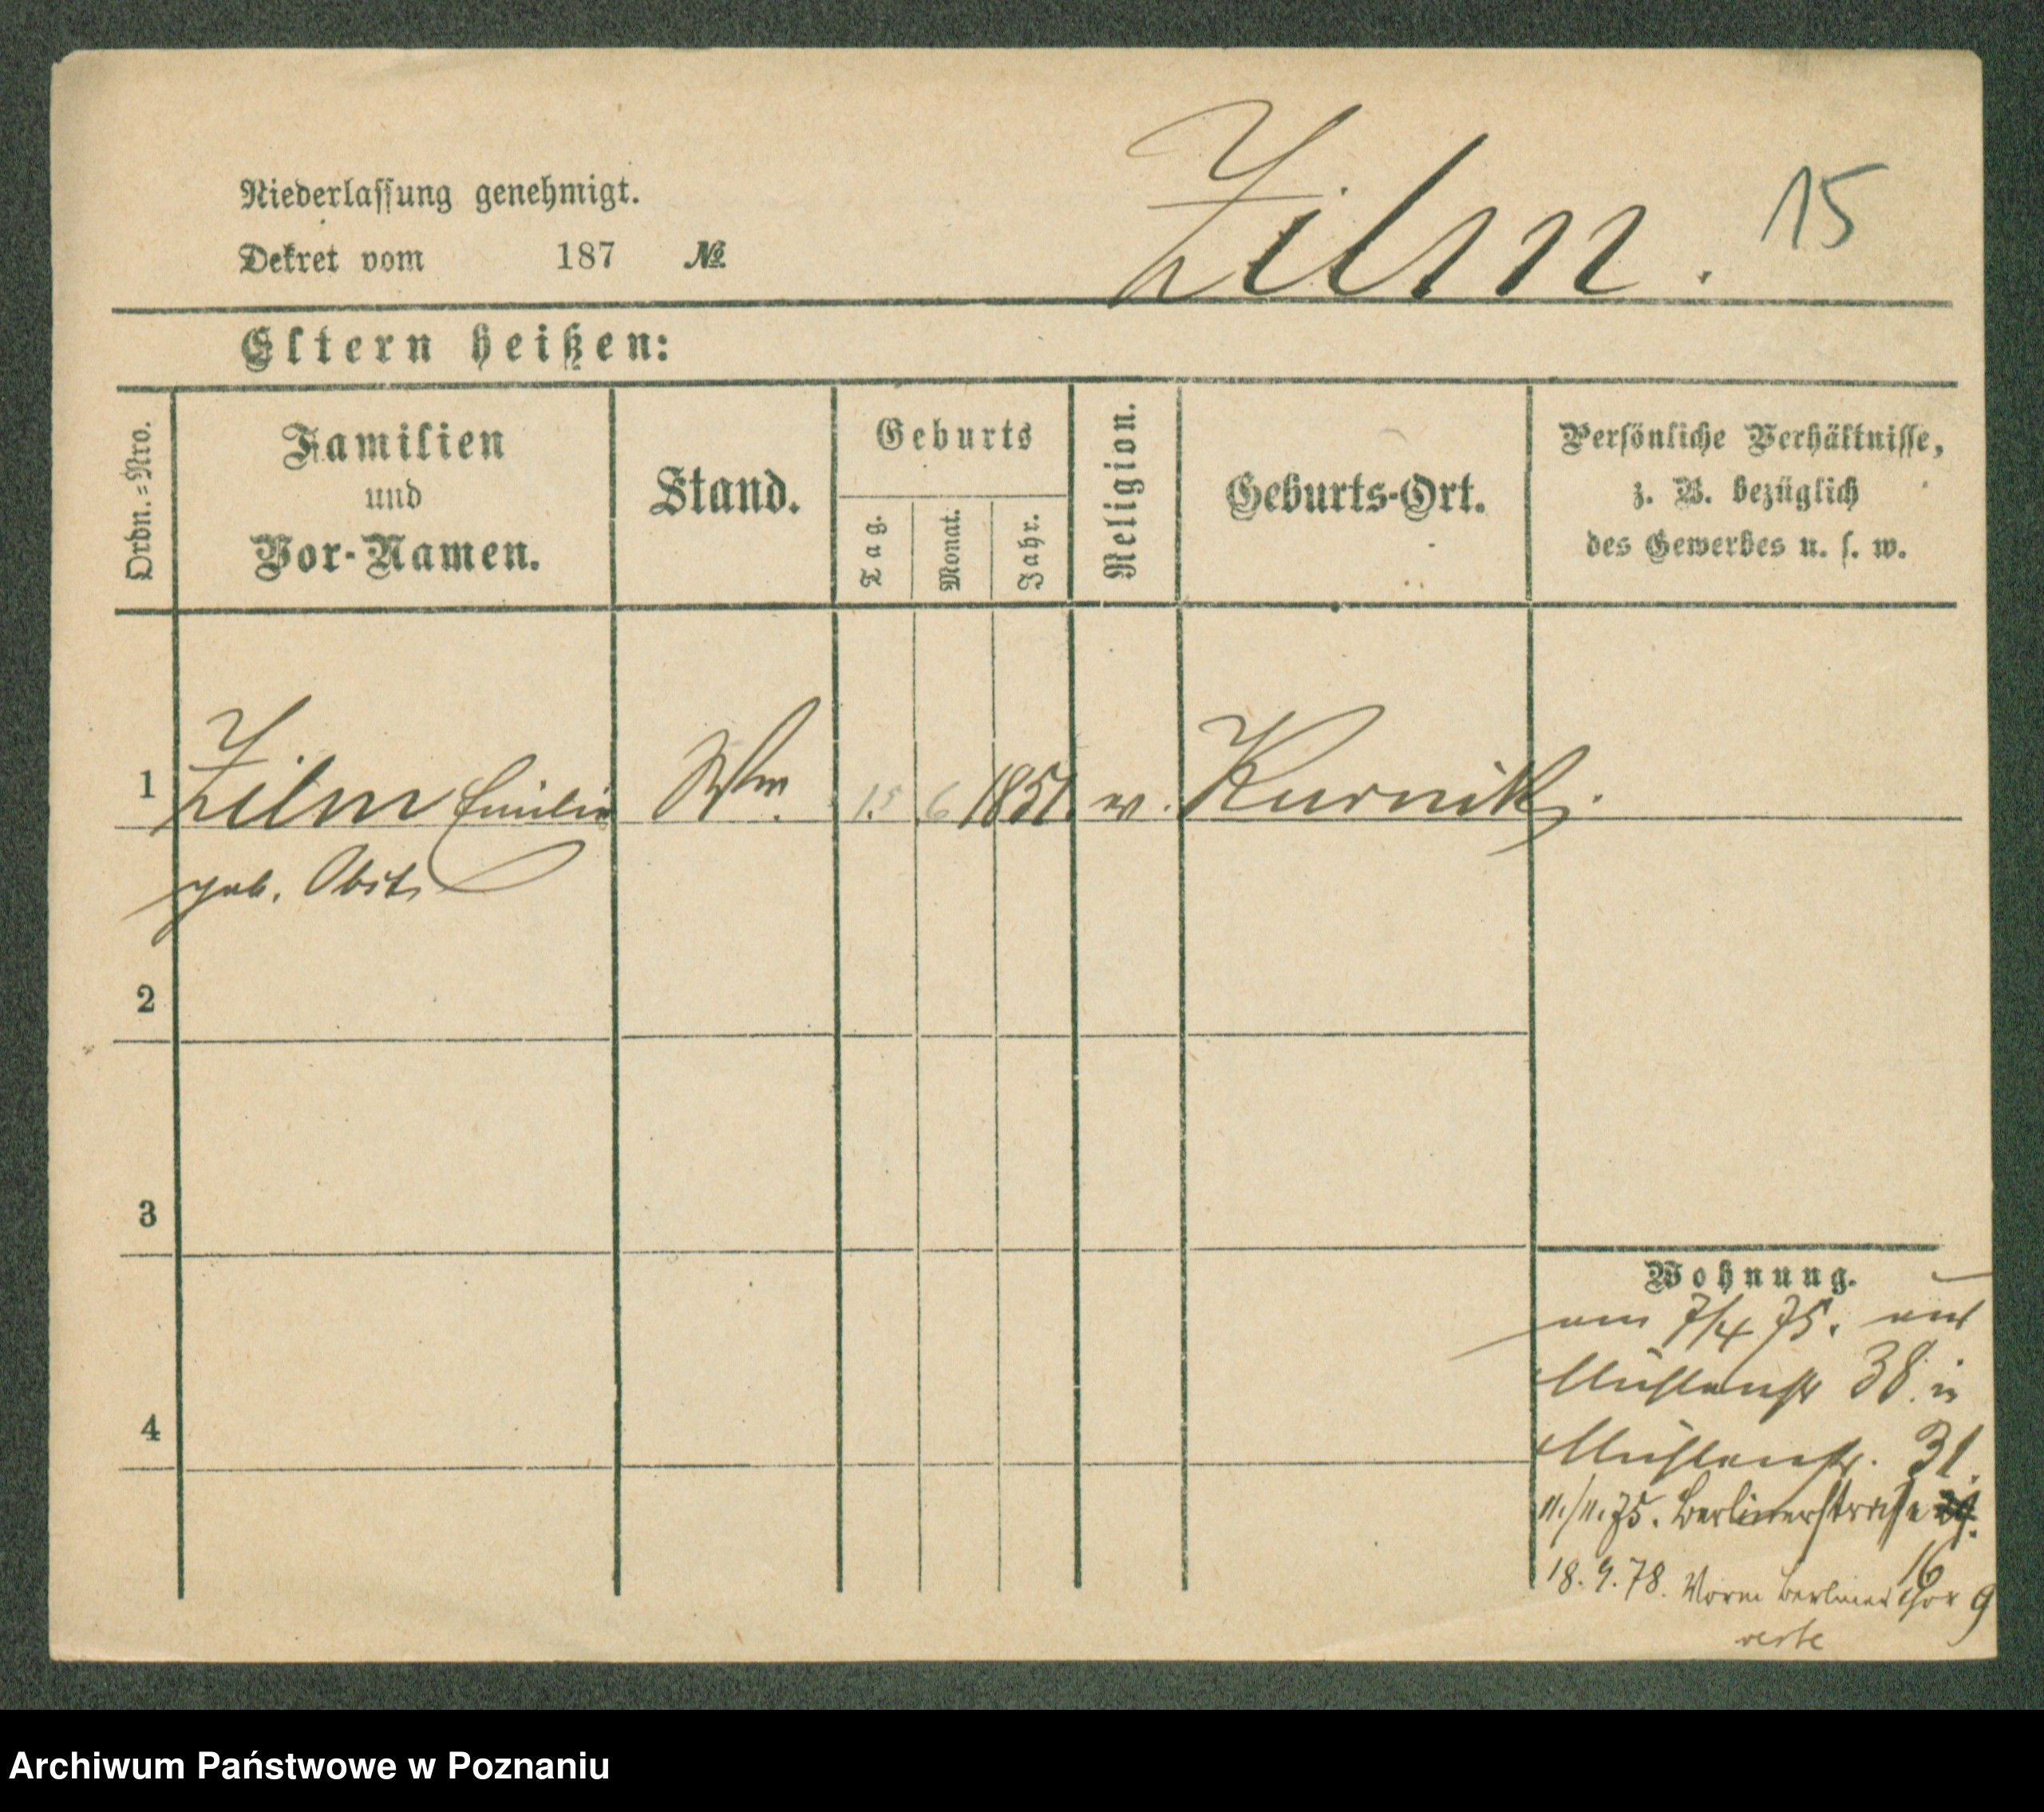 Zilm. 15
Niederlassung genehmigt.
Dekret vom 187 №
Eltern heißen:
Ordn.=Nro.
Familien
und
Vor-Namen.
Stand.
Geburts
Tag.
Monat.
Jahr.
Religion.
Geburts-Ort.
Persönliche Verhältnisse,
z. B. bezüglich
des Gewerbes u. s. w.
1 Zilm Emilie Ww. 15 6 1851. ev. Kurnik.
geb. Obst
2
3
4
Wohnung.
am 7/4 75. aus
Mühlenstr 38. in
Mühlenstr. 31.
11./11.75. Berlinerstraße
16
18.9.78. Vorm Berliner Thor 9
verte
Archiwum Państwowe w Poznaniu